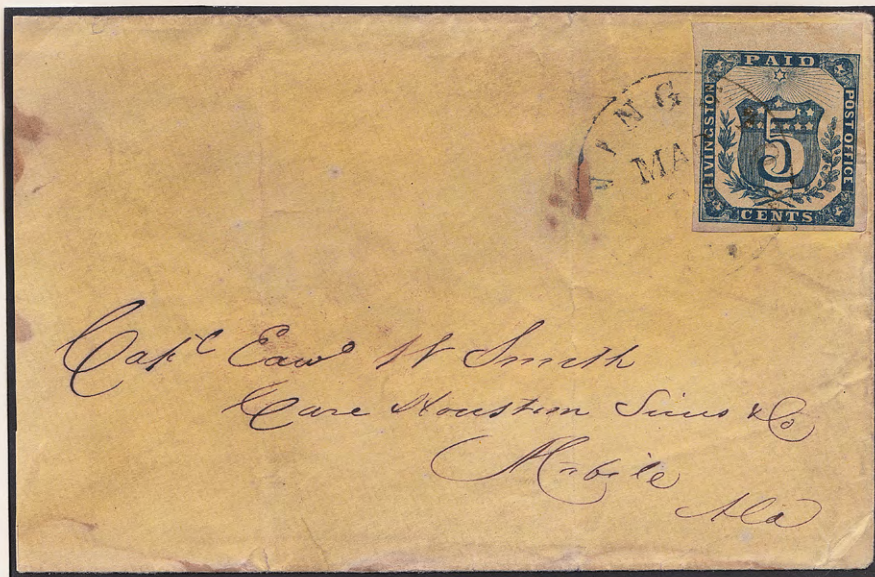 PAID
LIVINGSTON
POST OFFICE
5
CENTS
VING
MAR
Capt Edwd W Smith
Care Houston Sims & Co
Mobile
Ala